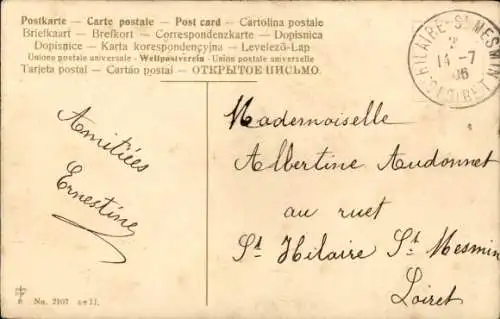 Postkarte – Carte postale – Post card – Cartolina postale
Briefkaart – Brefkort – Correspondenzkarte – Dopisnica
Dopisnice – Karta korespondencyjna – Levelező-Lap
Unione postale universale – Weltpostverein – Union postale universelle
Tarjeta postal – Cartão postal – ОТКРЫТОЕ ПИСЬМО.
HILAIRE-ST-MESMIN
14-7
06
LOIRET
Amitiées
Ernestine
Mademoiselle
Albertine Audonnet
au ruet
St Hilaire St Mesmin
Loiret
No. 2107